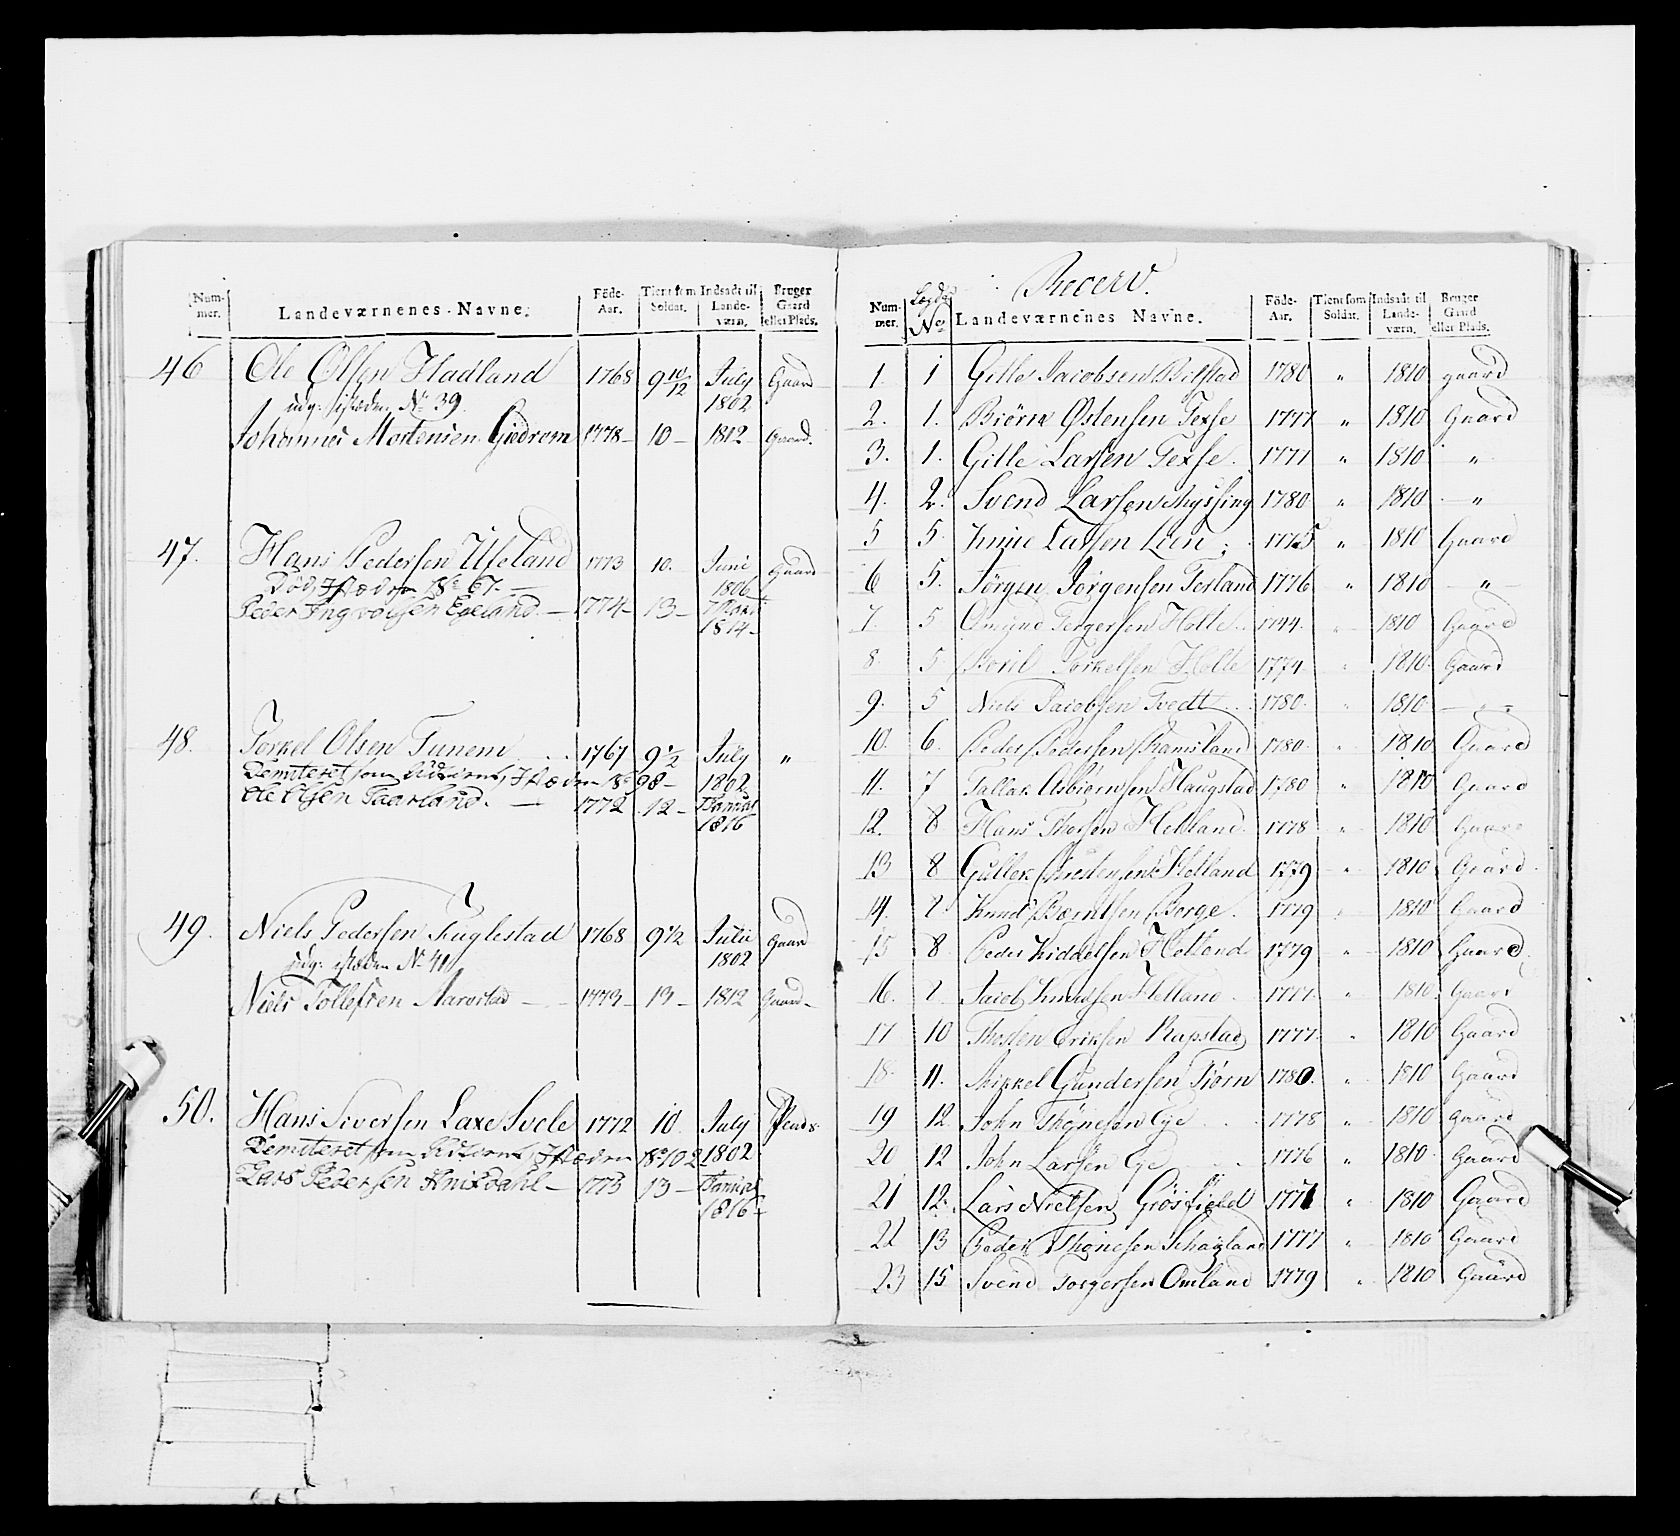 Num-mer. Landeværnenes Navne. Föde-Aar. Tient som Soldat. Indsadt til Lande-værn. Bruger Gaard eller Plads.
46 Ole Olsen Hadland 1768 9 10/12 July 1802 Gaard
udg. istæden No 39.
Johannes Mortensen Gjedrem 1778 10 1812 Gaard.
47. Hans Pedersen Ueland 1773 10. Juni 1806 Gaard
Död, Istæden No 67.
Peder Ingvorsen Egeland 1774 13 1814
48. Torkel Olsen Tunem 1767 9 1/2 July 1802 "
Demiteret som Istæden No 98
Ole Olsen Taarland. 1772 12 1816
49. Niels Pedersen Fuglestad 1768 9 1/2 Julii 1802 Gaard
udg. istæden No 41
Niels Tollefsen Aarestad 1773 13 1812 Gaard
50. Hans Siversen Laxe Svele 1772 10 July 1802 Plads
Demiteret som Istæden No 102
Lars Pedersen 1773 13 1816
Recerv.
Num-mer. Lægds No Landeværnenes Navne. Föde-Aar. Tient som Soldat. Indsadt til Lande-værn. Bruger Gaard eller Plads.
1. 1 Gitle Jacobsen Bilstad 1780 " 1810 gaard
2. 1. Biörn Östensen Texse 1777 " 1810 Gaard
3. 1. Gitle Larsen Texse 1771 " 1810 "
4. 2. Svend Larsen 1780 " 1810 "
5 5. Knud Larsen Lien 1775 " 1810 Gaard
6 5. Jörgen Jörgensen Terland 1776 " 1810 "
7. 5 Tergersen Holte 1774 " 1810 Gaard
8. 5 Torkelsen Holte 1774 " 1810 Gaard
9. 5 Niels Jacobsen Tvedt 1780 " 1810 "
10. 6. Peder Pedersen Ramsland 1780 " 1810 Gaard
11. 7 Tallak Asbiörnsen Haugstad 1780 " 1810 Gaard
12. 8 Hans Thorsen Helland 1778 " 1810 Gaard
13 8 Gullek Christensen Helland 1779 " 1810 Gaard
14. 8 Knud Berntsen Berge. 1779 " 1810 Gaard
15 8 Peder Kiddelsen Helland 1779 " 1810 Gaard
16. 8 Jacob Knudsen Helland 1777 " 1810 Gaard
17 10 Thosten Eriksen Rapstad 1777 " 1810 Gaard
18. 11. Mikkel Gundersen Tiörn 1780. " 1810 Gaard
19 12 John Thönesen Eje 1778 " 1810 Gaard
20 12 John Larsen Eje 1776 " 1810 Gaard
21 12. Lars Nielsen Grösfield 1771 " 1810 Gaard
22 13 Peder Thönesen Schagland 1777 " 1810 Gaard
23 15 Svend Torgersen Omland 1779 " 1810 Gaard